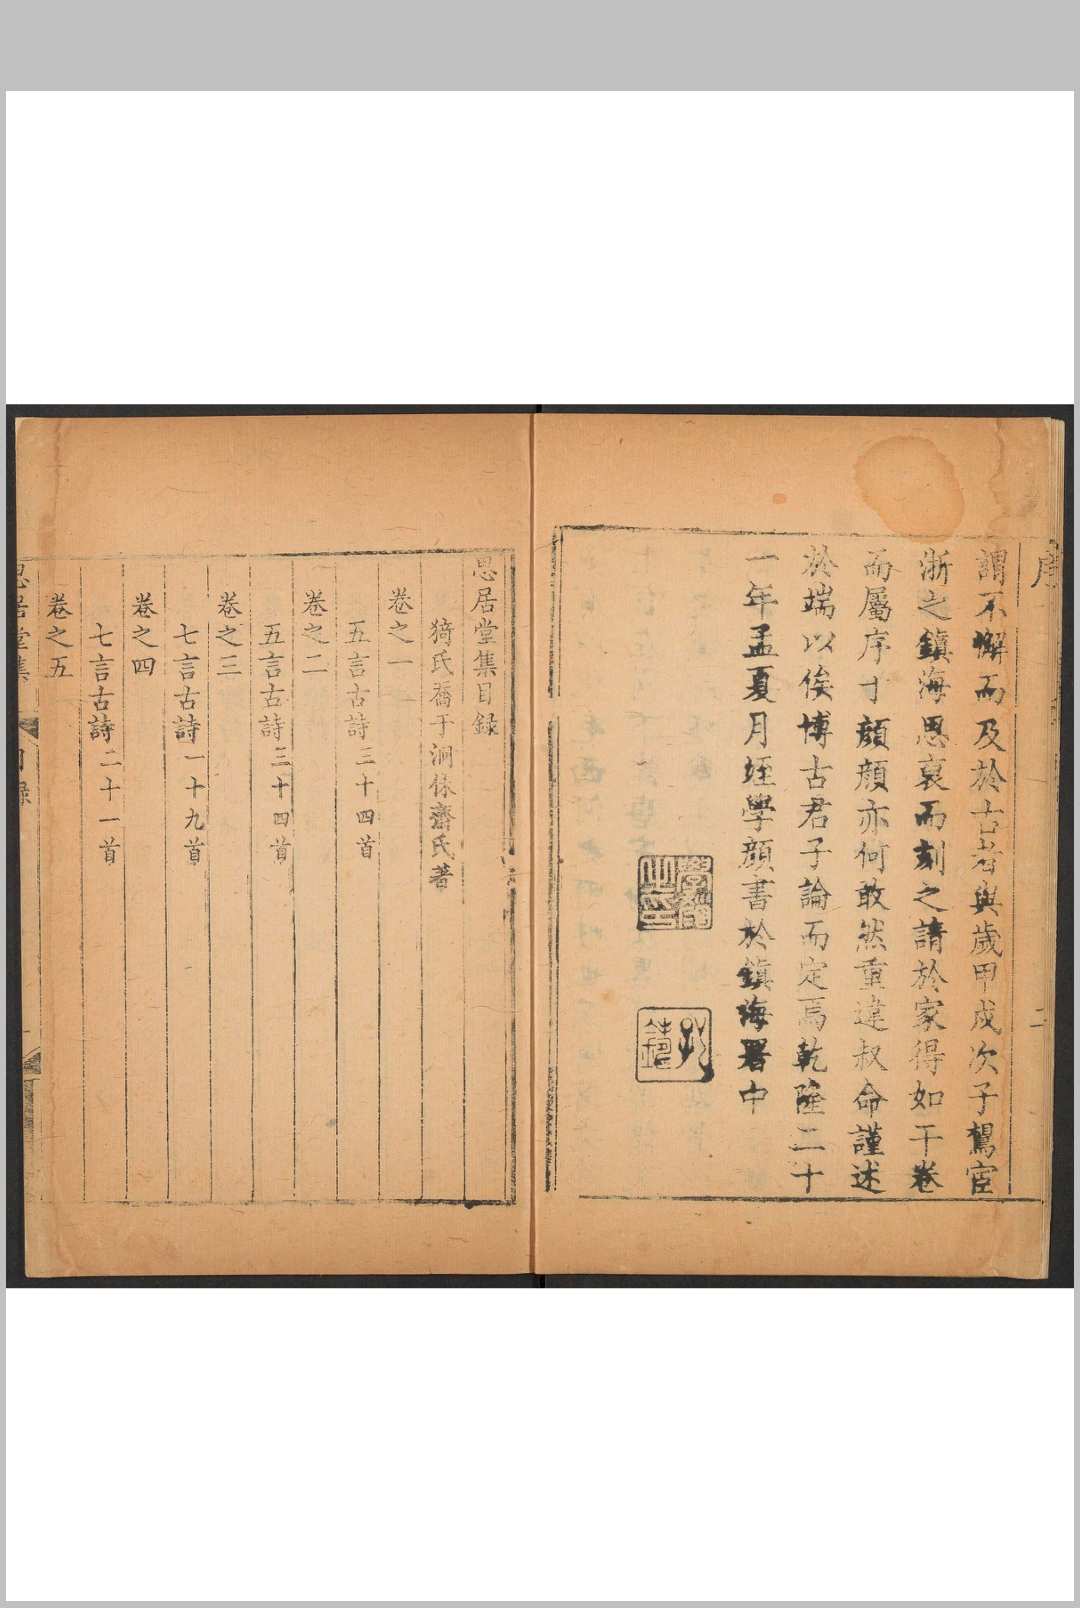 序
二
謂不懈而及於古者與歲甲戌次子駕宦
浙之鎮海思裒而刻之請於家得如干卷
而屬序于顔顔亦何敢然重違叔命謹述
於端以俟博古君子論而定焉乾隆二十
一年孟夏月姪學顔書於鎮海署中
學顔之印
思居堂集目録
猗氏喬于泂休齋氏著
卷之一
五言古詩三十四首
卷之二
五言古詩三十四首
卷之三
七言古詩一十九首
卷之四
七言古詩二十一首
卷之五
思居堂集
目録